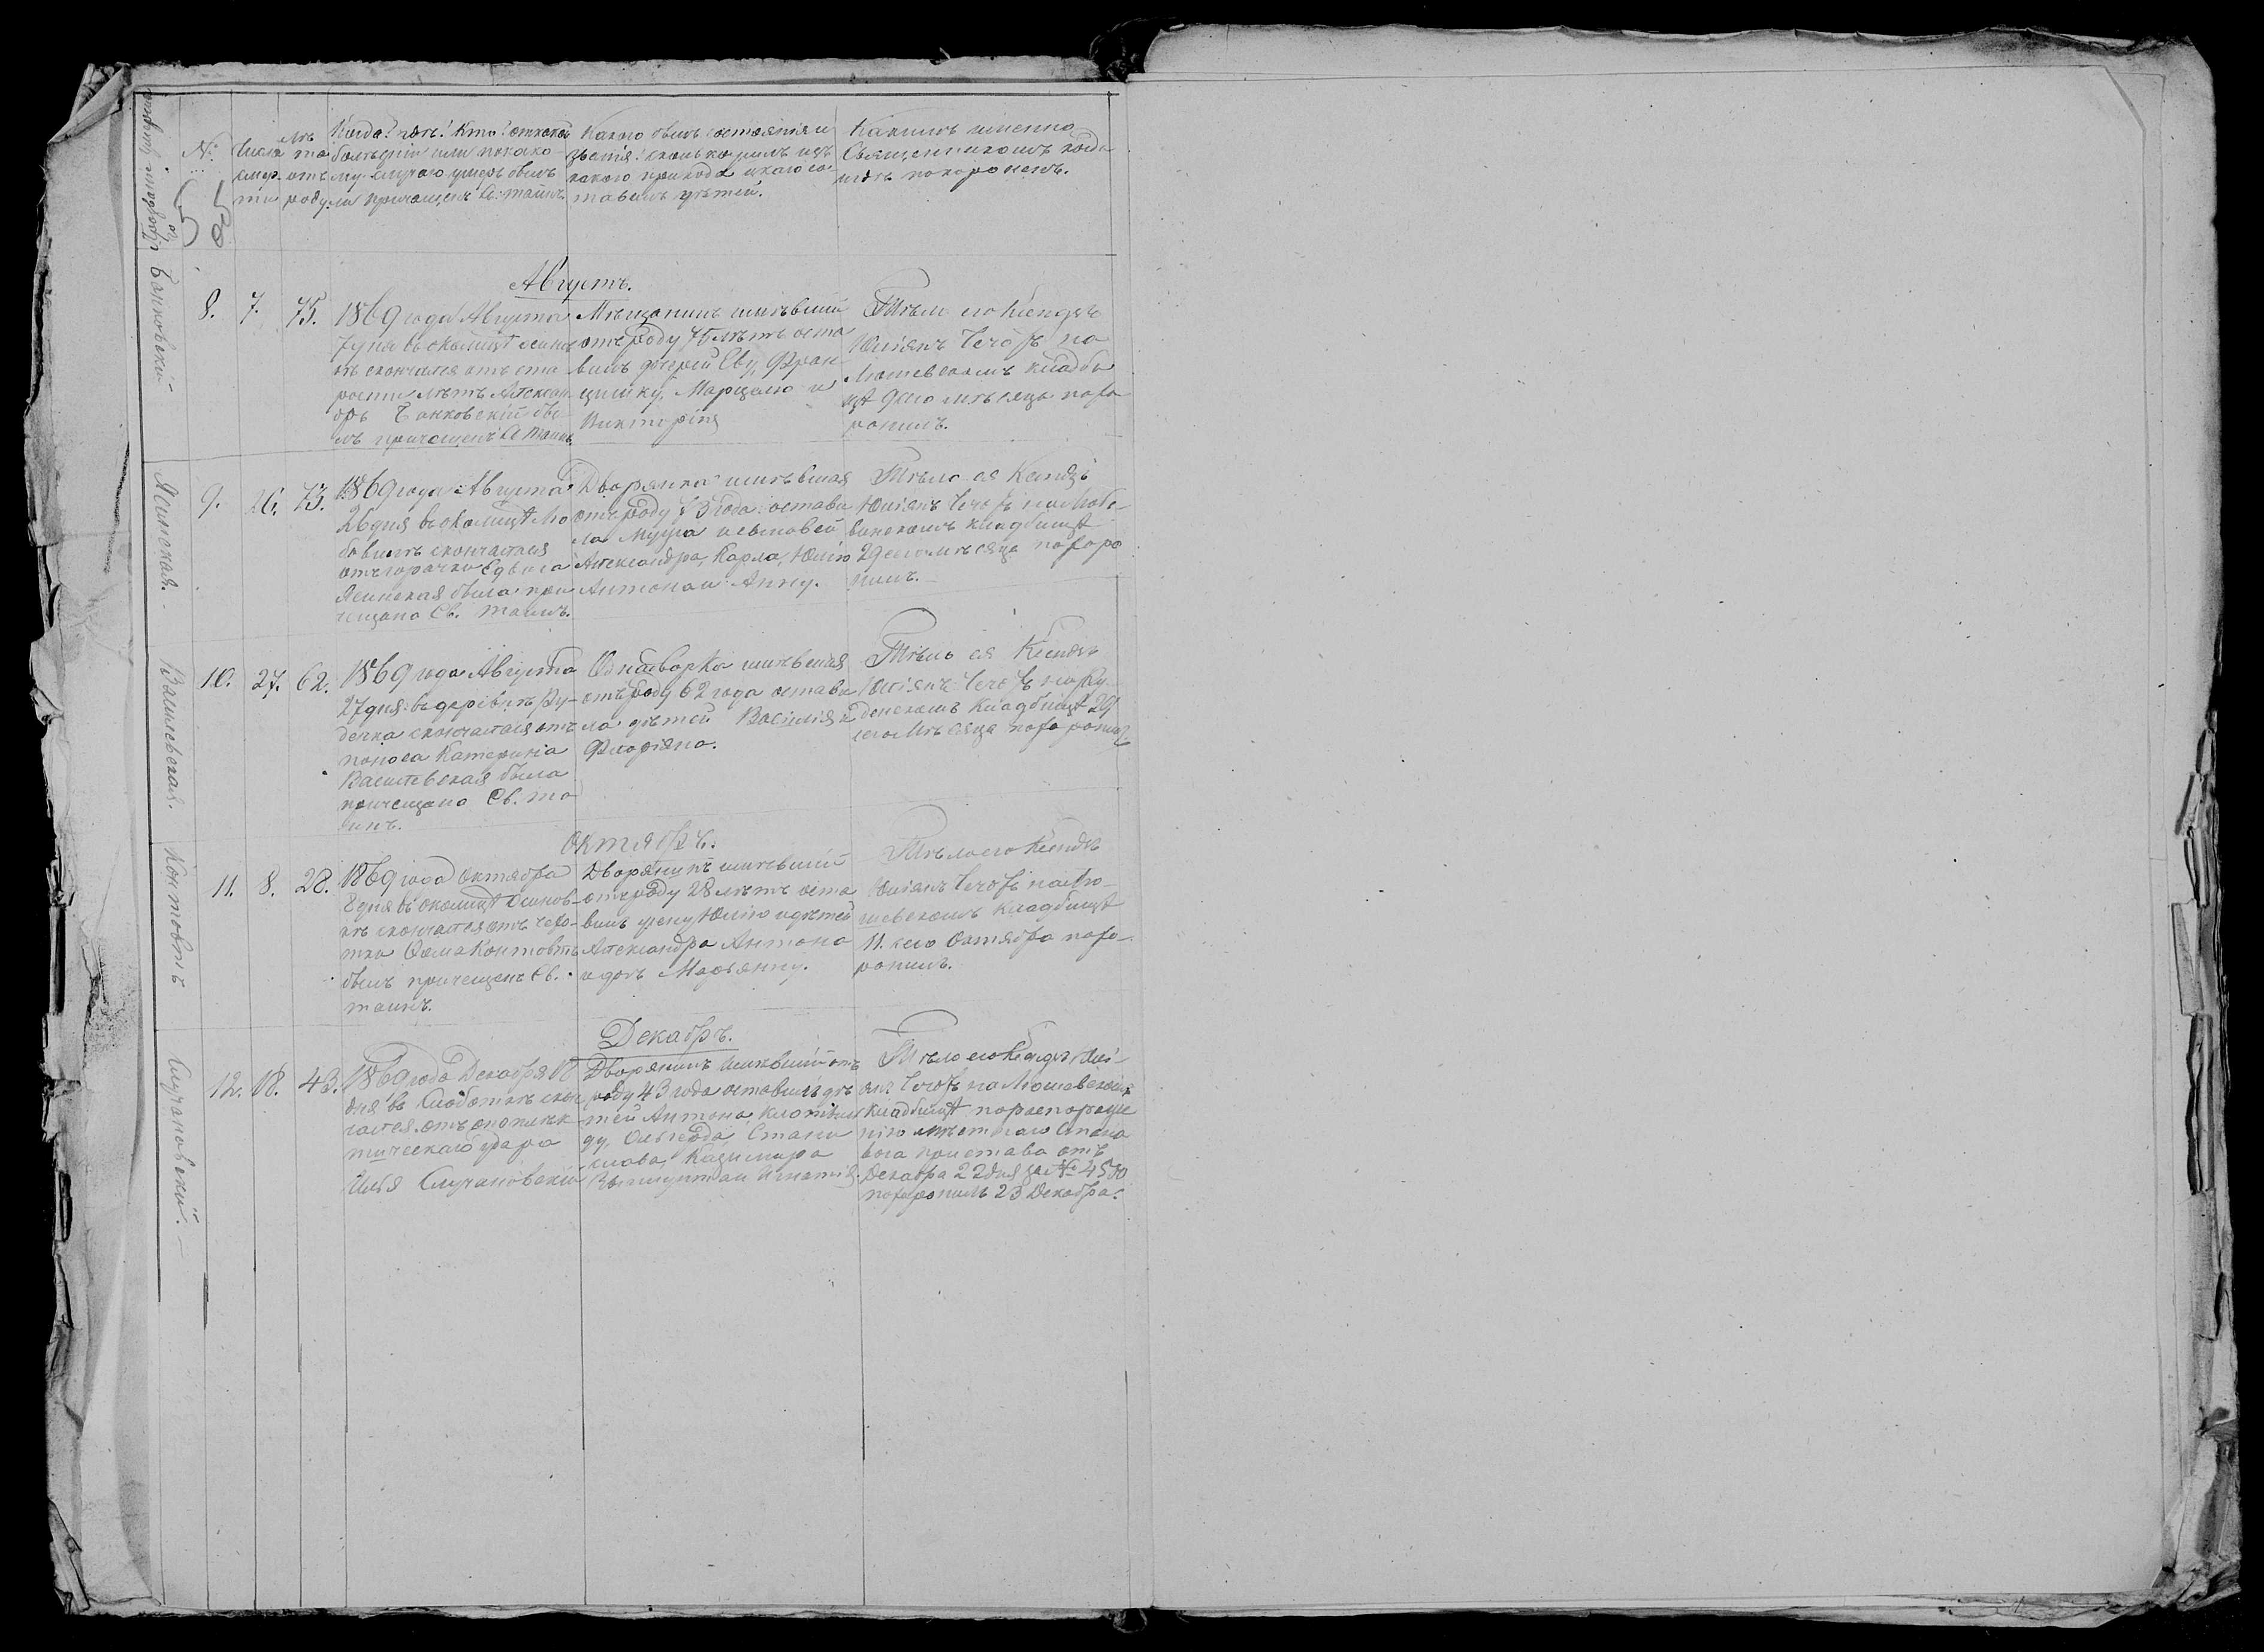 №
Числа
смер.
ти
Лѣ
та
отъ
роду.
Когда? гдѣ? Кто? отъ какой
болѣзни или по како-
му случаю умеръ былъ
ли причащенъ С. таинъ.
Какого былъ состоянія и
званія? сколько жилъ изъ
какого прихода и какого ос-
тавилъ дѣтей.
Какимъ именно
Священникомъ когда
и гдѣ похороненъ.
Августъ.
Банковскій
8. 7. 75.
1869 года Августа
7 дня въ околицѣ
скончался отъ ста
рости лѣтъ Александ
ръ Банковскій бы-
лъ причащенъ С. таинъ.
Мѣщанинъ имѣвшій
отъ роду 75 лѣтъ оста
вилъ дочерей Еву, Фран
цишку, Марцелю и
Викторію
Тѣло его Ксендзъ
Юліянъ Чехоръ на
Люшевскомъ кладби
щѣ 9 сего мѣсяца похо
ронилъ.
Ясинская.
9. 26. 73.
1869 года Августа
26 дня въ околицѣ Ло
бовинъ скончалася
отъ горячки Едвига
Ясинская была при
чащана Св. таинъ.
Дворянка имѣвшая
отъ роду 73 года: остави
ла мужа и сыновей
Александра, Карла, Юлію
Антона и Анну.
Тѣло ея Ксендзъ
Юліянъ Чехоръ на Лобо-
винскомъ кладбищѣ
29 сего мѣсяца похоро
нилъ.
Васильевская.
10. 27. 62.
1869 года Августа
27 дня въ деревнѣ Ру-
денка скончалася отъ
поноса Катерина
Васильевская была
причещана Св. та
инъ.
Однадворка имѣвшая
отъ роду 62 года остави
ла дѣтей Василія и
Флоріана.
Тѣло ея Ксендзъ
Юліянъ Чехоръ на Ру-
денскомъ кладбищѣ 29
сего мѣсяца похоронилъ
Октябрь.
Контовтъ
11. 8. 28.
1869 года Октября
8 дня въ околицѣ Осинов-
кѣ скончался отъ чахо-
тки Фома Контовтъ
былъ причещенъ Св.
таинъ.
Дворянинъ имѣвшій
отъ роду 28 лѣтъ оста
вилъ жену Юлію и дѣтей
Александра Антона
и дочь Марьянну.
Тѣло его Ксендзъ
Юліянъ Чехоръ на Лю-
шевскомъ кладбищѣ
11. сего Октября похо-
ронилъ.
Декабрь.
Случановскій.
12. 18. 43.
1869 года Декабря 18
дня въ Слободкѣ скон
чался отъ апоплек-
тическаго удара
Илья Случановскій
Дворянинъ имѣвшій отъ
роду 43 года оставилъ дѣ
тей Антона, Клотиль
ду, Ольгерда, Стани
слава, Казимира
Зыгмунта и Игнатія.
Тѣло его Ксендзъ Юлі-
янъ Чехоръ на Люшевскомъ
кладбищѣ по распоряже
нію мѣстнаго Стано
ваго пристава отъ
Декабра 22 дня за № 4580
похоронилъ 23 Декабра.